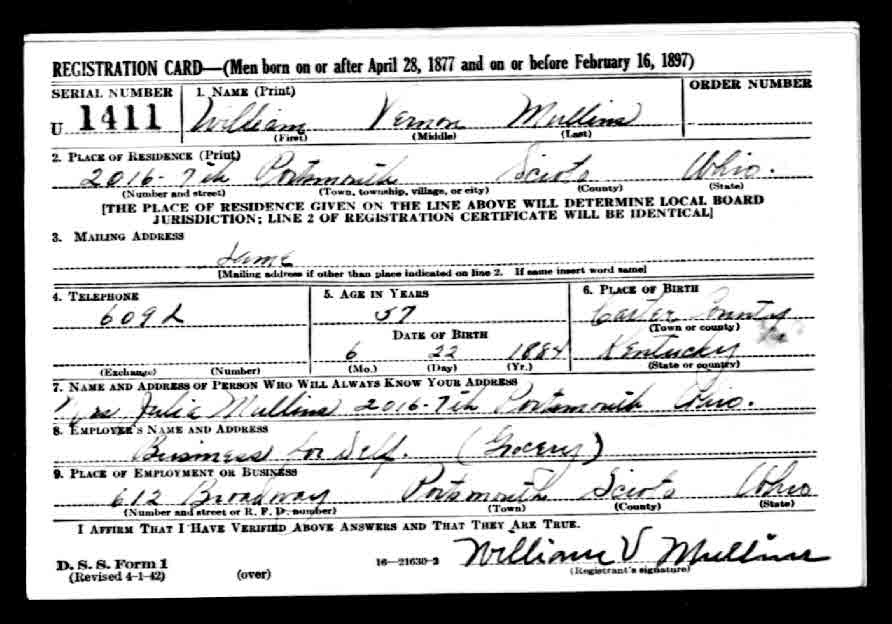 REGISTRATION CARD—(Men born on or after April 28, 1877 and on or before February 16, 1897)
SERIAL NUMBER 1. NAME (Print) ORDER NUMBER
U 1411 William Vernon Mullins
(First) (Middle) (Last)
2. PLACE OF RESIDENCE (Print)
2016-7th Portsmouth Scioto Ohio.
(Number and street) (Town, township, village, or city) (County) (State)
[THE PLACE OF RESIDENCE GIVEN ON THE LINE ABOVE WILL DETERMINE LOCAL BOARD
JURISDICTION; LINE 2 OF REGISTRATION CERTIFICATE WILL BE IDENTICAL]
3. MAILING ADDRESS
Same
[Mailing address if other than place indicated on line 2. If same insert word same]
4. TELEPHONE 5. AGE IN YEARS 6. PLACE OF BIRTH
609 L 57 Carter County
(Town or county)
DATE OF BIRTH
6 22 1884 Kentucky
(Exchange) (Number) (Mo.) (Day) (Yr.) (State or country)
7. NAME AND ADDRESS OF PERSON WHO WILL ALWAYS KNOW YOUR ADDRESS
Mrs Julia Mullins 2016-7th Portsmouth Ohio.
8. EMPLOYER'S NAME AND ADDRESS
Business for Self. (Grocery)
9. PLACE OF EMPLOYMENT OR BUSINESS
612 Broadway Portsmouth Scioto Ohio
(Number and street or R. F. D. number) (Town) (County) (State)
I AFFIRM THAT I HAVE VERIFIED ABOVE ANSWERS AND THAT THEY ARE TRUE.
D. S. S. Form 1
(Revised 4-1-42) (over) 16—21630-2 William V Mullins
(Registrant's signature)